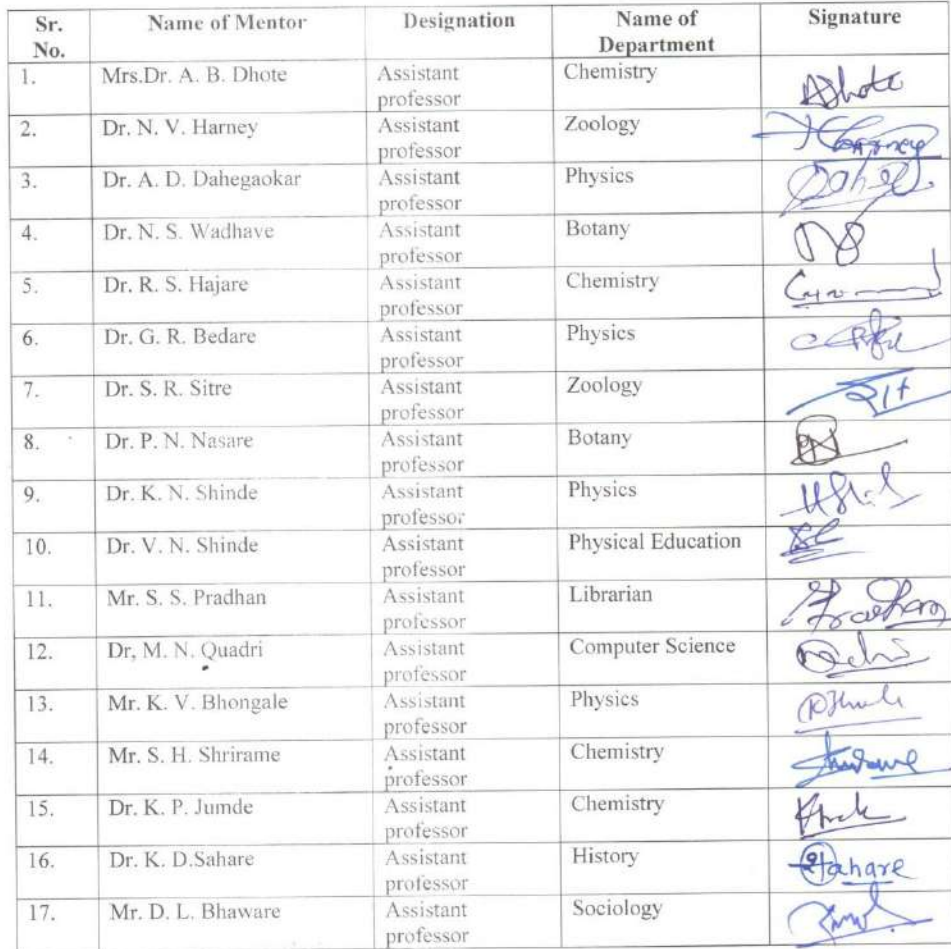 Sr. No. Name of Mentor Designation Name of Department Signature
1. Mrs.Dr. A. B. Dhote Assistant professor Chemistry ADhote
2. Dr. N. V. Harney Assistant professor Zoology
3. Dr. A. D. Dahegaokar Assistant professor Physics
4. Dr. N. S. Wadhave Assistant professor Botany
5. Dr. R. S. Hajare Assistant professor Chemistry
6. Dr. G. R. Bedare Assistant professor Physics
7. Dr. S. R. Sitre Assistant professor Zoology
8. Dr. P. N. Nasare Assistant professor Botany
9. Dr. K. N. Shinde Assistant professor Physics
10. Dr. V. N. Shinde Assistant professor Physical Education
11. Mr. S. S. Pradhan Assistant professor Librarian
12. Dr, M. N. Quadri Assistant professor Computer Science
13. Mr. K. V. Bhongale Assistant professor Physics
14. Mr. S. H. Shrirame Assistant professor Chemistry
15. Dr. K. P. Jumde Assistant professor Chemistry
16. Dr. K. D.Sahare Assistant professor History
17. Mr. D. L. Bhaware Assistant professor Sociology